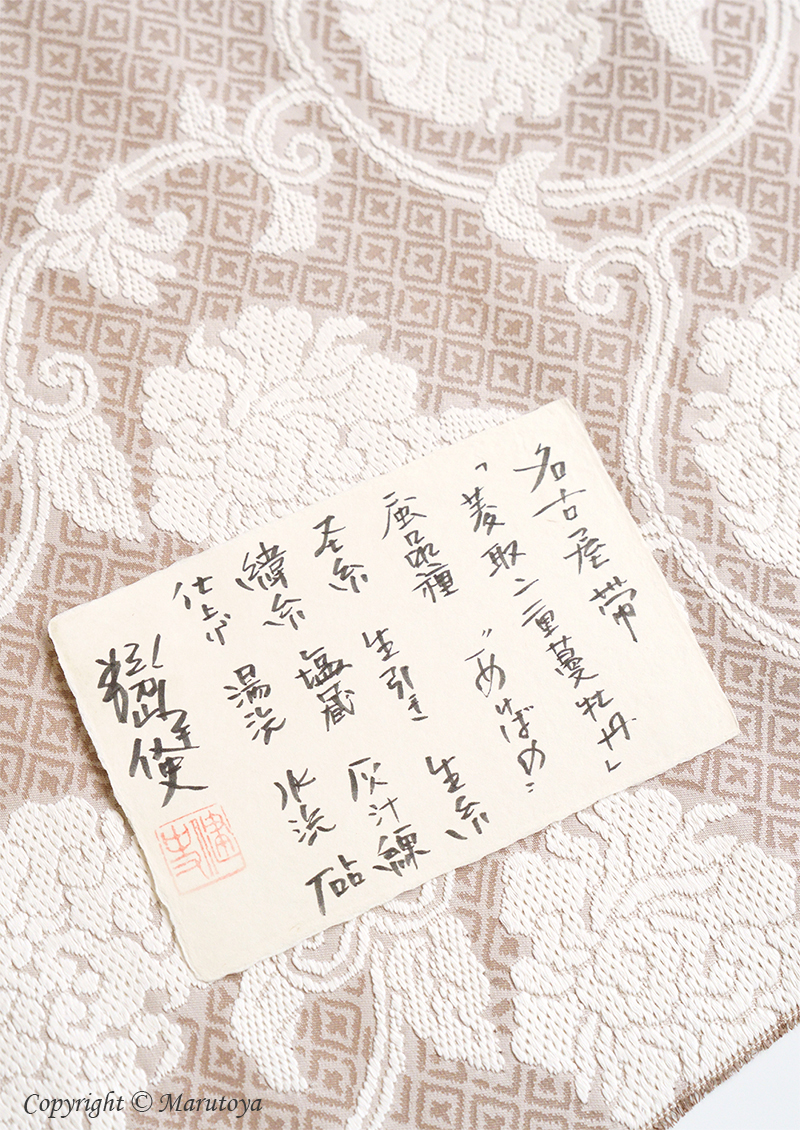 名古屋帯
「菱取二重蔓牡丹」
蚕品種 "あけぼの"
圣糸 生引き 生糸
緯糸 塩蔵 灰汁練
仕上げ 湯洗 水洗 砧
勝山健史
Copyright © Marutoya